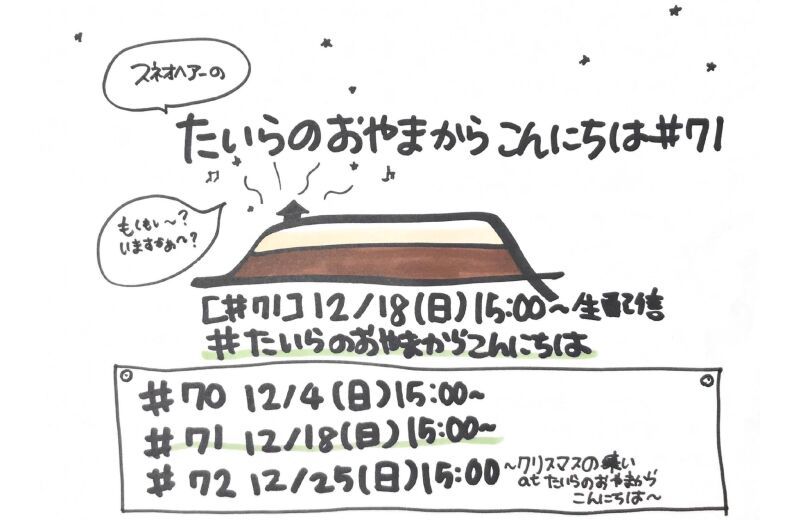 スネオヘアーの
たいらのおやまからこんにちは#71
もくもい〜?
いますなぁ〜?
[#71]12/18(日)15:00〜生配信
#たいらのおやまからこんにちは
#70 12/4(日)15:00〜
#71 12/18(日)15:00〜
#72 12/25(日)15:00
〜クリスマスの集い
at たいらのおやまから
こんにちは〜